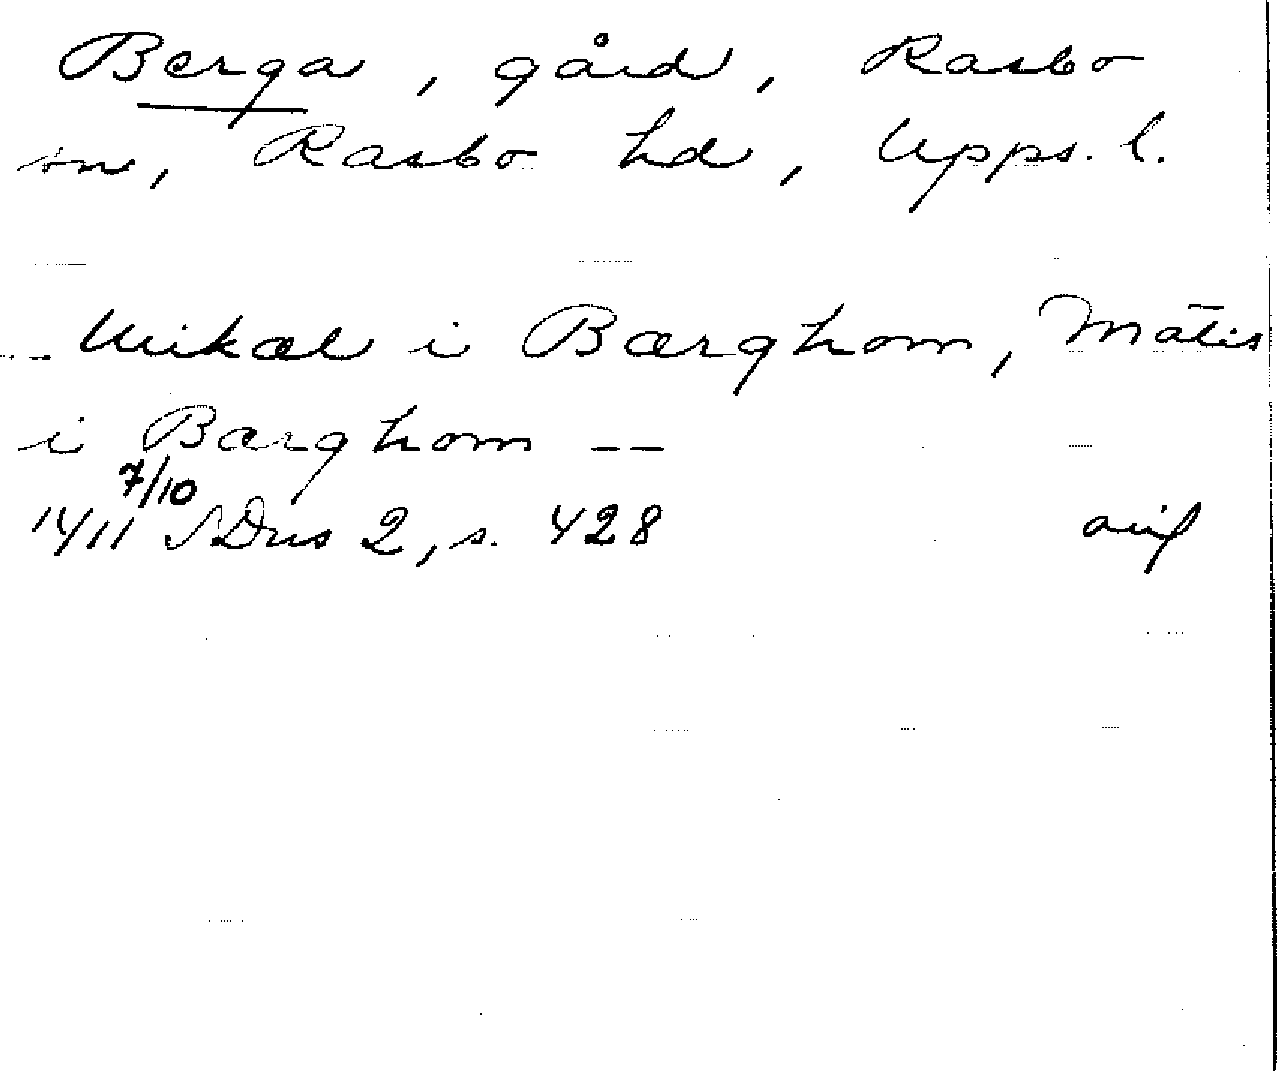 Berga, gård, Rasbo
sn, Rasbo hd, Upps. l.
-- Mikæl i Bærghom, Mātis
i Bærghom --
7/10
1411 SDns 2, s. 428